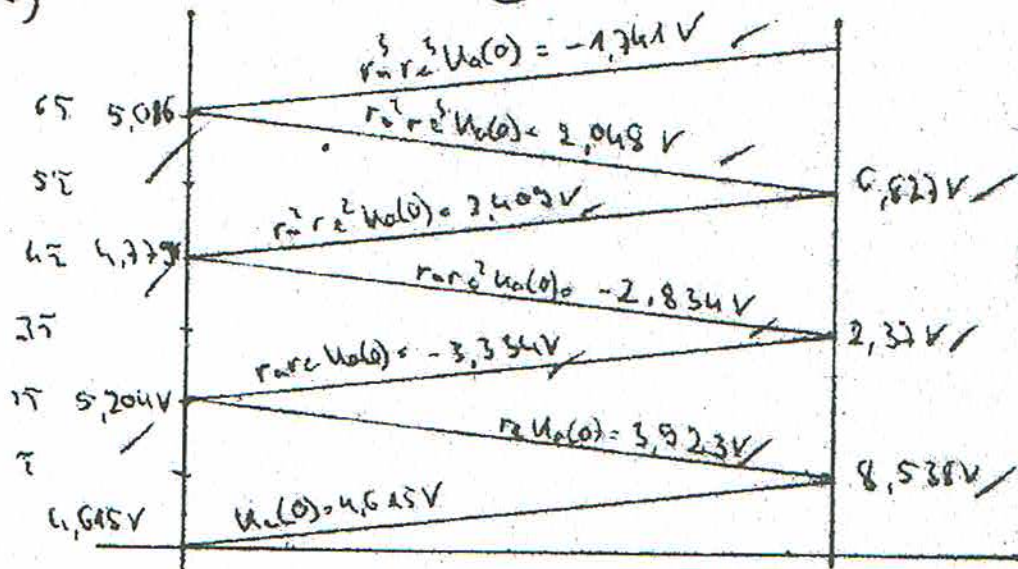 r_a^3 r_e^3 U_a(0) = -1,741 V
6τ 5,086
r_a^2 r_e^3 U_a(0) = 2,048 V
5τ 6,827 V
r_a^2 r_e^2 U_a(0) = 2,409 V
4τ 4,779
r_a r_e^2 U_a(0) = -2,834 V
3τ 2,37 V
r_a r_e U_a(0) = -3,334 V
2τ 5,204 V
r_e U_a(0) = 3,923 V
τ 8,538 V
4,615 V U_a(0) = 4,615 V